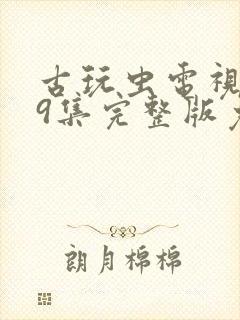 古玩虫电視
9集完整版免
朗月棉棉